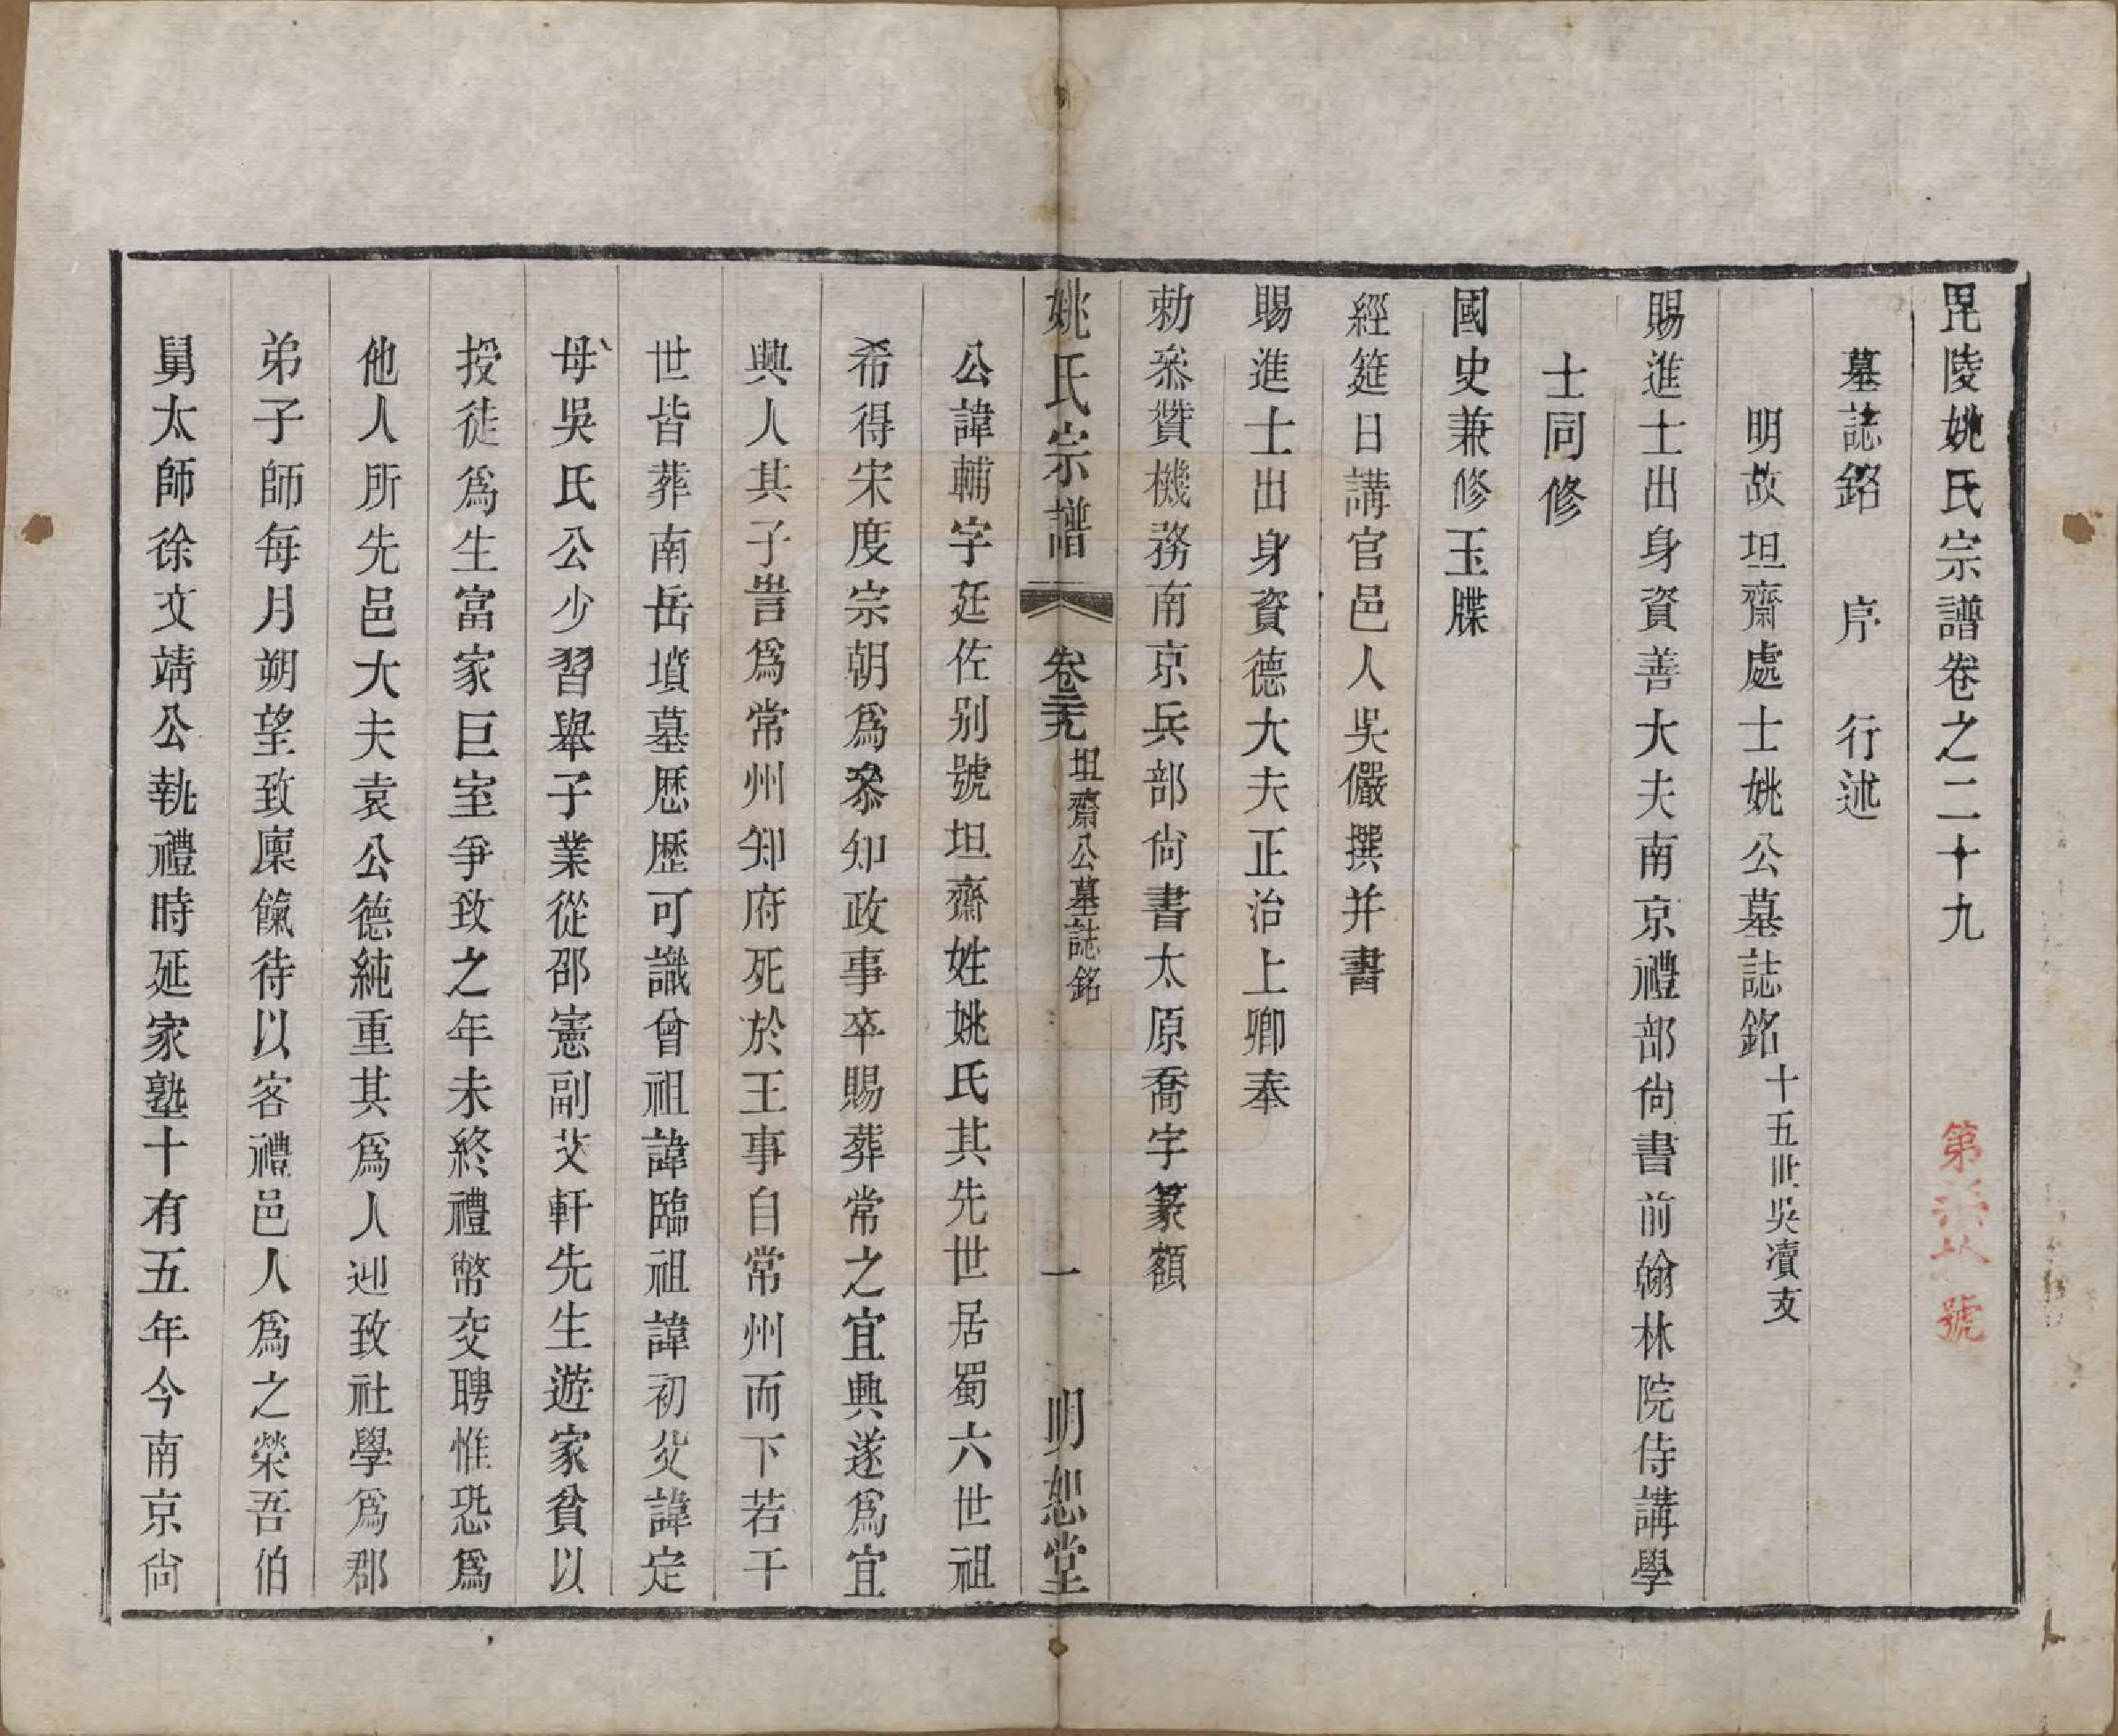 毘陵姚氏宗譜卷之二十九
第號
墓誌銘　序　行述
明故坦齋處士姚公墓誌銘十五世吳瀆支
賜進士出身資善大夫南京禮部尙書前翰林院侍講學
士同修
國史兼修玉牒
經筵日講官邑人吳儼撰并書
賜進士出身資德大夫正治上卿奉
勅叅贊機務南京兵部尙書太原喬宇篆額
姚氏宗譜　卷二十九　坦齋公墓誌銘　一　明恕堂
公諱輔字廷佐别號坦齋姓姚氏其先世居蜀六世祖
希得宋度宗朝爲叅知政事卒賜葬常之宜興遂爲宜
興人其子訔爲常州知府死於王事自常州而下若干
世皆葬南岳墳墓歷歷可識曾祖諱臨祖諱初父諱定
母吳氏公少習舉子業從邵憲副艾軒先生遊家貧以
授徒爲生富家巨室爭致之年未終禮幣交聘惟恐爲
他人所先邑大夫袁公德純重其爲人迎致社學爲郡
弟子師每月朔望致廩餼待以客禮邑人爲之榮吾伯
舅太師徐文靖公執禮時延家塾十有五年今南京尙